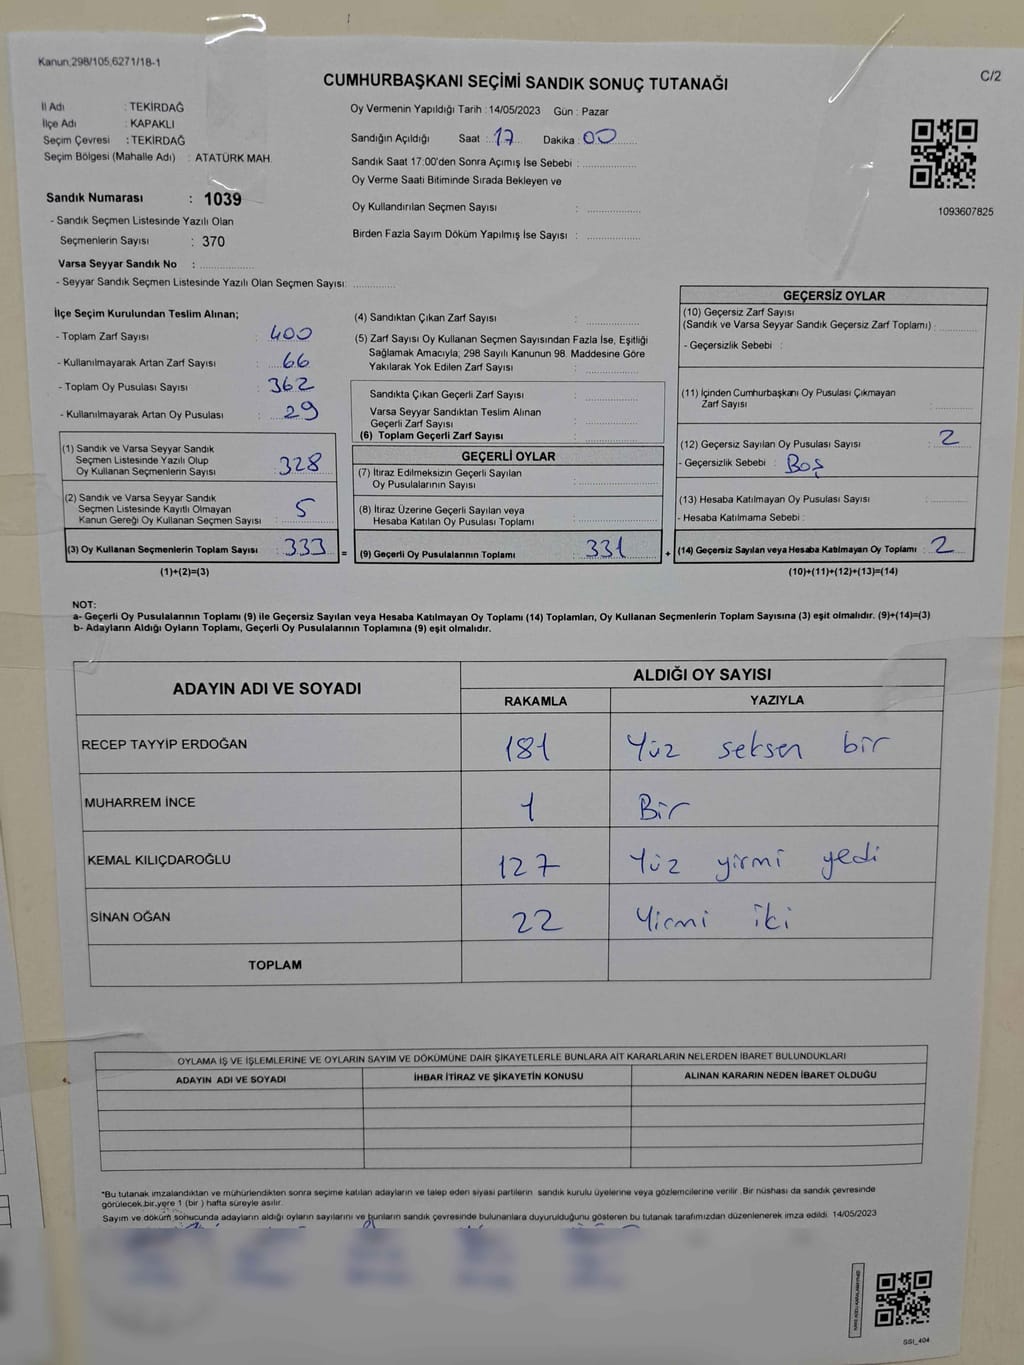 Kanun,298/105,6271/18-1
C/2
CUMHURBAŞKANI SEÇİMİ SANDIK SONUÇ TUTANAĞI
İl Adı : TEKİRDAĞ
İlçe Adı : KAPAKLI
Seçim Çevresi : TEKİRDAĞ
Seçim Bölgesi (Mahalle Adı) : ATATÜRK MAH.
Oy Vermenin Yapıldığı Tarih : 14/05/2023 Gün : Pazar
Sandığın Açıldığı Saat : 17 Dakika : 00
Sandık Saat 17:00'den Sonra Açımış İse Sebebi :
Oy Verme Saati Bitiminde Sırada Bekleyen ve
Oy Kullandırılan Seçmen Sayısı :
Birden Fazla Sayım Döküm Yapılmış İse Sayısı :
1093607825
Sandık Numarası : 1039
- Sandık Seçmen Listesinde Yazılı Olan
Seçmenlerin Sayısı : 370
Varsa Seyyar Sandık No :
- Seyyar Sandık Seçmen Listesinde Yazılı Olan Seçmen Sayısı:
İlçe Seçim Kurulundan Teslim Alınan;
- Toplam Zarf Sayısı : 400
- Kullanılmayarak Artan Zarf Sayısı : 66
- Toplam Oy Pusulası Sayısı : 362
- Kullanılmayarak Artan Oy Pusulası : 29
(1) Sandık ve Varsa Seyyar Sandık
Seçmen Listesinde Yazılı Olup
Oy Kullanan Seçmenlerin Sayısı : 328
(2) Sandık ve Varsa Seyyar Sandık
Seçmen Listesinde Kayıtlı Olmayan
Kanun Gereği Oy Kullanan Seçmen Sayısı : 5
(3) Oy Kullanan Seçmenlerin Toplam Sayısı : 333 =
(1)+(2)=(3)
(4) Sandıktan Çıkan Zarf Sayısı :
(5) Zarf Sayısı Oy Kullanan Seçmen Sayısından Fazla İse, Eşitliği
Sağlamak Amacıyla; 298 Sayılı Kanunun 98. Maddesine Göre
Yakılarak Yok Edilen Zarf Sayısı :
Sandıkta Çıkan Geçerli Zarf Sayısı :
Varsa Seyyar Sandıktan Teslim Alınan
Geçerli Zarf Sayısı :
(6) Toplam Geçerli Zarf Sayısı :
GEÇERLİ OYLAR
(7) İtiraz Edilmeksizin Geçerli Sayılan
Oy Pusulalarının Sayısı :
(8) İtiraz Üzerine Geçerli Sayılan veya
Hesaba Katılan Oy Pusulası Toplamı :
(9) Geçerli Oy Pusulalarının Toplamı : 331 +
GEÇERSİZ OYLAR
(10) Geçersiz Zarf Sayısı
(Sandık ve Varsa Seyyar Sandık Geçersiz Zarf Toplamı) :
- Geçersizlik Sebebi :
(11) İçinden Cumhurbaşkanı Oy Pusulası Çıkmayan
Zarf Sayısı :
(12) Geçersiz Sayılan Oy Pusulası Sayısı : 2
- Geçersizlik Sebebi : Boş
(13) Hesaba Katılmayan Oy Pusulası Sayısı :
- Hesaba Katılmama Sebebi :
(14) Geçersiz Sayılan veya Hesaba Katılmayan Oy Toplamı : 2
(10)+(11)+(12)+(13)=(14)
NOT:
a- Geçerli Oy Pusulalarının Toplamı (9) ile Geçersiz Sayılan veya Hesaba Katılmayan Oy Toplamı (14) Toplamları, Oy Kullanan Seçmenlerin Toplam Sayısına (3) eşit olmalıdır. (9)+(14)=(3)
b- Adayların Aldığı Oyların Toplamı, Geçerli Oy Pusulalarının Toplamına (9) eşit olmalıdır.
ADAYIN ADI VE SOYADI ALDIĞI OY SAYISI
RAKAMLA YAZIYLA
RECEP TAYYİP ERDOĞAN 181 Yüz seksen bir
MUHARREM İNCE 1 Bir
KEMAL KILIÇDAROĞLU 127 Yüz yirmi yedi
SİNAN OĞAN 22 Yirmi iki
TOPLAM
OYLAMA İŞ VE İŞLEMLERİNE VE OYLARIN SAYIM VE DÖKÜMÜNE DAİR ŞİKAYETLERLE BUNLARA AİT KARARLARIN NELERDEN İBARET BULUNDUKLARI
ADAYIN ADI VE SOYADI İHBAR İTİRAZ VE ŞİKAYETİN KONUSU ALINAN KARARIN NEDEN İBARET OLDUĞU
*Bu tutanak imzalandıktan ve mühürlendikten sonra seçime katılan adayların ve talep eden siyasi partilerin sandık kurulu üyelerine veya gözlemcilerine verilir. Bir nüshası da sandık çevresinde
görülecek bir yere 1 (bir ) hafta süreyle asılır.
Sayım ve döküm sonucunda adayların aldığı oyların sayılarını ve bunların sandık çevresinde bulunanlara duyurulduğunu gösteren bu tutanak tarafımızdan düzenlenerek imza edildi. 14/05/2023
SSI_404